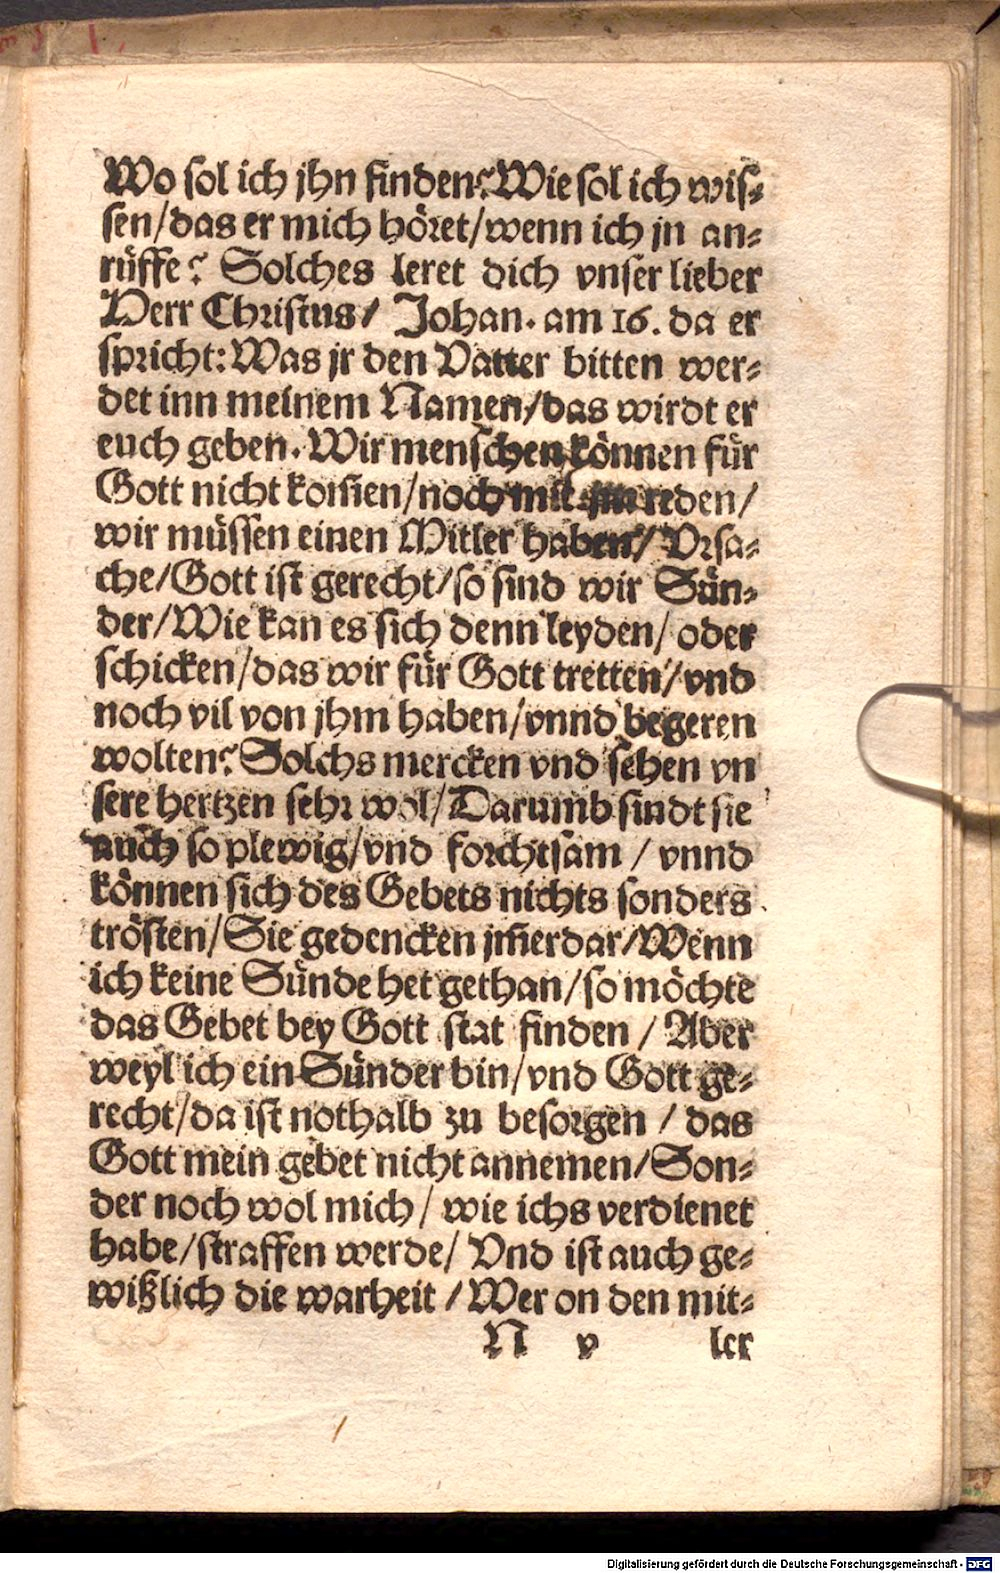 Wo sol ich jhn finden? Wie sol ich wis⸗
sen/das er mich höret/wenn ich jn an⸗
rüffe? Solches leret dich vnser lieber
Herr Christus/ Johan. am 16. da er
spricht: Was jr den Vatter bitten wer⸗
det inn meinem Namen/das wirdt er
euch geben. Wir menschen können für
Gott nicht kom̃en/noch mit jm reden/
wir müssen einen Mitler haben/ Vrsa⸗
che/Gott ist gerecht/so sind wir Sün⸗
der/Wie kan es sich denn leyden/ oder
schicken/das wir für Gott tretten/vnd
noch vil von jhm haben/vnnd begeren
wolten? Solchs mercken vnd sehen vn
sere hertzen sehr wol/Darumb sindt sie
auch so plewig/vnd forchtsam / vnnd
können sich des Gebets nichts sonders
trösten/Sie gedencken jm̃erdar/Wenn
ich keine Sünde het gethan/so möchte
das Gebet bey Gott stat finden / Aber
weyl ich ein Sünder bin/vnd Gott ge⸗
recht/da ist nothalb zu besorgen / das
Gott mein gebet nicht annemen/Son⸗
der noch wol mich/ wie ichs verdienet
habe/straffen werde/ Vnd ist auch ge⸗
wißlich die warheit / Wer on den mit⸗
N v ler
Digitalisierung gefördert durch die Deutsche Forschungsgemeinschaft - DFG